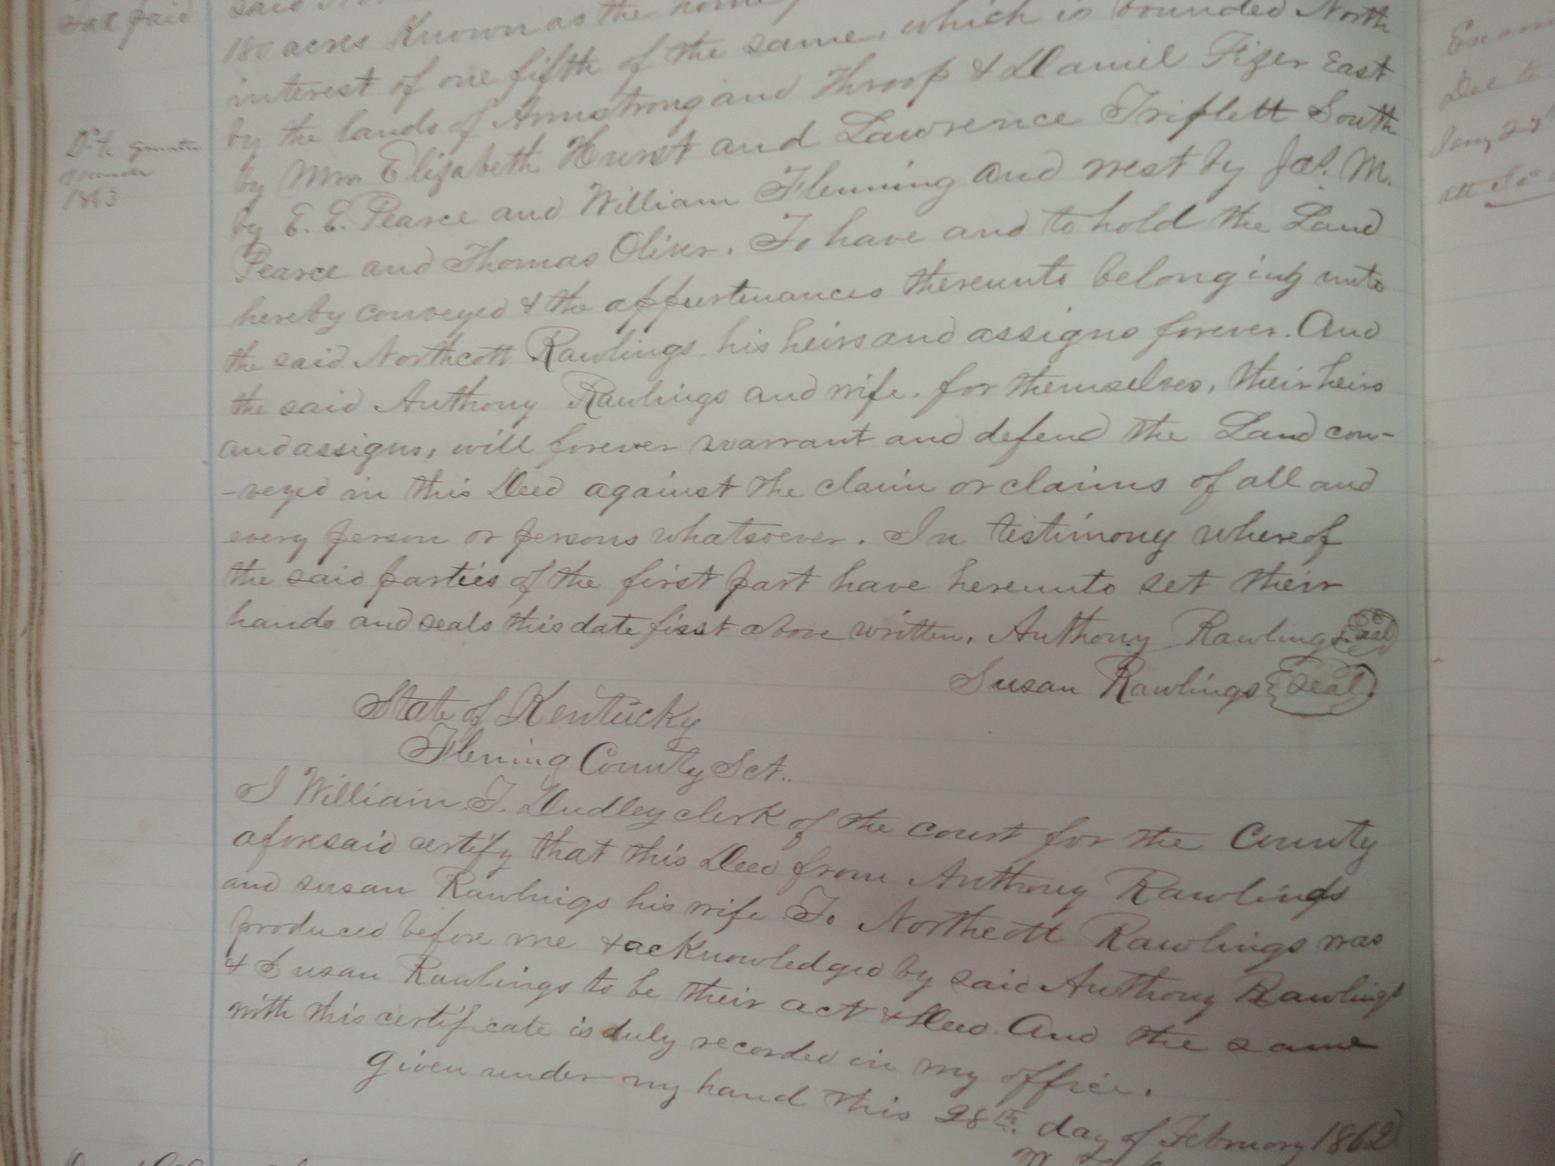 Tax paid
said
180 acres Known as the home
interest of one fifth of the same, which is bounded North
by the lands of Armstrong and Throop & Daniel Fizer East
by Mrs. Elizabeth Hurst and Lawrence Triplett South
by E. E. Pearce and William Flemming and west by Jas. M.
Pearce and Thomas Oliver. To have and to hold the Land
hereby conveyed & the appurtenances thereunto belonging unto
the said Northcott Rawlings his heirs and assigns forever. And
the said Anthony Rawlings and wife. for themselves, their heirs
and assigns, will forever warrant and defend the Land con-
-veyed in this Deed against the claim or claims of all and
every person or persons whatsoever. In testimony whereof
the said parties of the first part have hereunto set their
hands and seals this date first above written. Anthony Rawlings Seal
Susan Rawlings Seal
State of Kentucky
Fleming County Sct..
I William T. Dudley clerk of the court for the County
aforesaid certify that this Deed from Anthony Rawlings
and susan Rawlings his wife To Northcott Rawlings was
produced before me & acknowledged by said Anthony Rawlings
& Susan Rawlings to be their act & Deed. And the same
with this certificate is duly recorded in my office.
Given under my hand this 28th. day of February 1862
1863
Exam
Del to
Jany 27